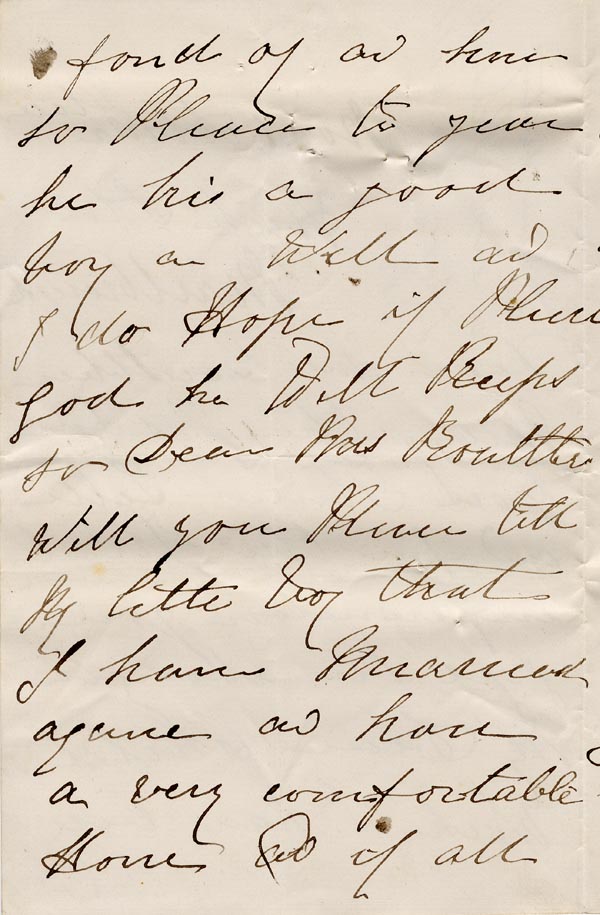 fond of ad here
so Please to year
he his a good
boy an Well ad
I do Hope if Please
god he Will Keeps
so Dear Mrs
Will you Please tell
My little boy that
I have Married
agane ad have
a very comfortable
Home ad if all